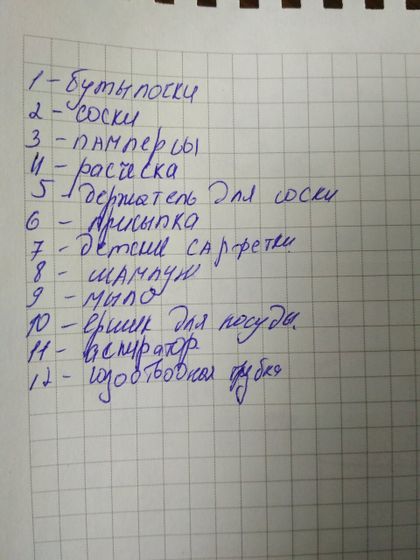 1 - бутылочки
2 - соски
3 - памперсы
4 - расческа
5 - держатель для соски
6 - присыпка
7 - детские салфетки
8 - шампунь
9 - мыло
10 - ершик для посуды
11 - аспиратор
12 - газоотводная трубка